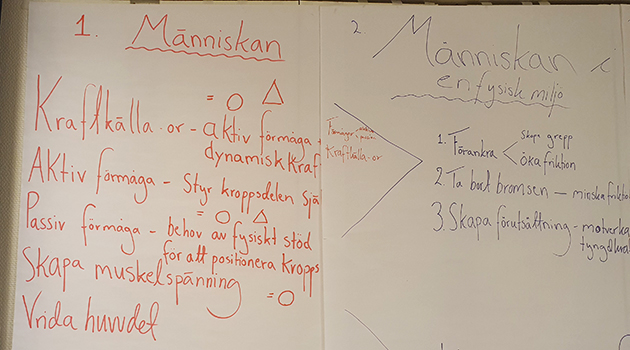 1. Människan
Kraftkälla-or - aktiv förmåga +
dynamisk kraf
= O △
Aktiv förmåga - Styr kroppsdelen sjä
= O △
Passiv förmåga - behov av fysiskt stöd
för att positionera kropps
Skapa muskelspänning
= O
Vrida huvudet
2. Människan i
en fysisk miljö
Kraftkälla-or
1. Förankra < Skapa grepp
öka friktion
2. Ta bort bromsen — minska friktion
3. Skapa förutsättning - motverka